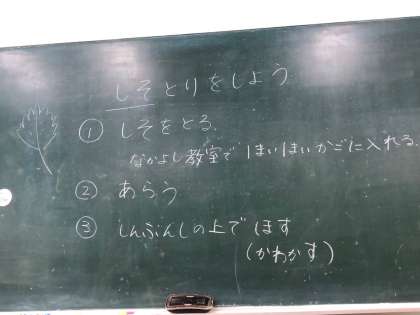 しそとりをしよう
① しそをとる.
なかよし教室で 1まい1まい かごに入れる.
② あらう
③ しんぶんしの上で ほす
(かわかす)